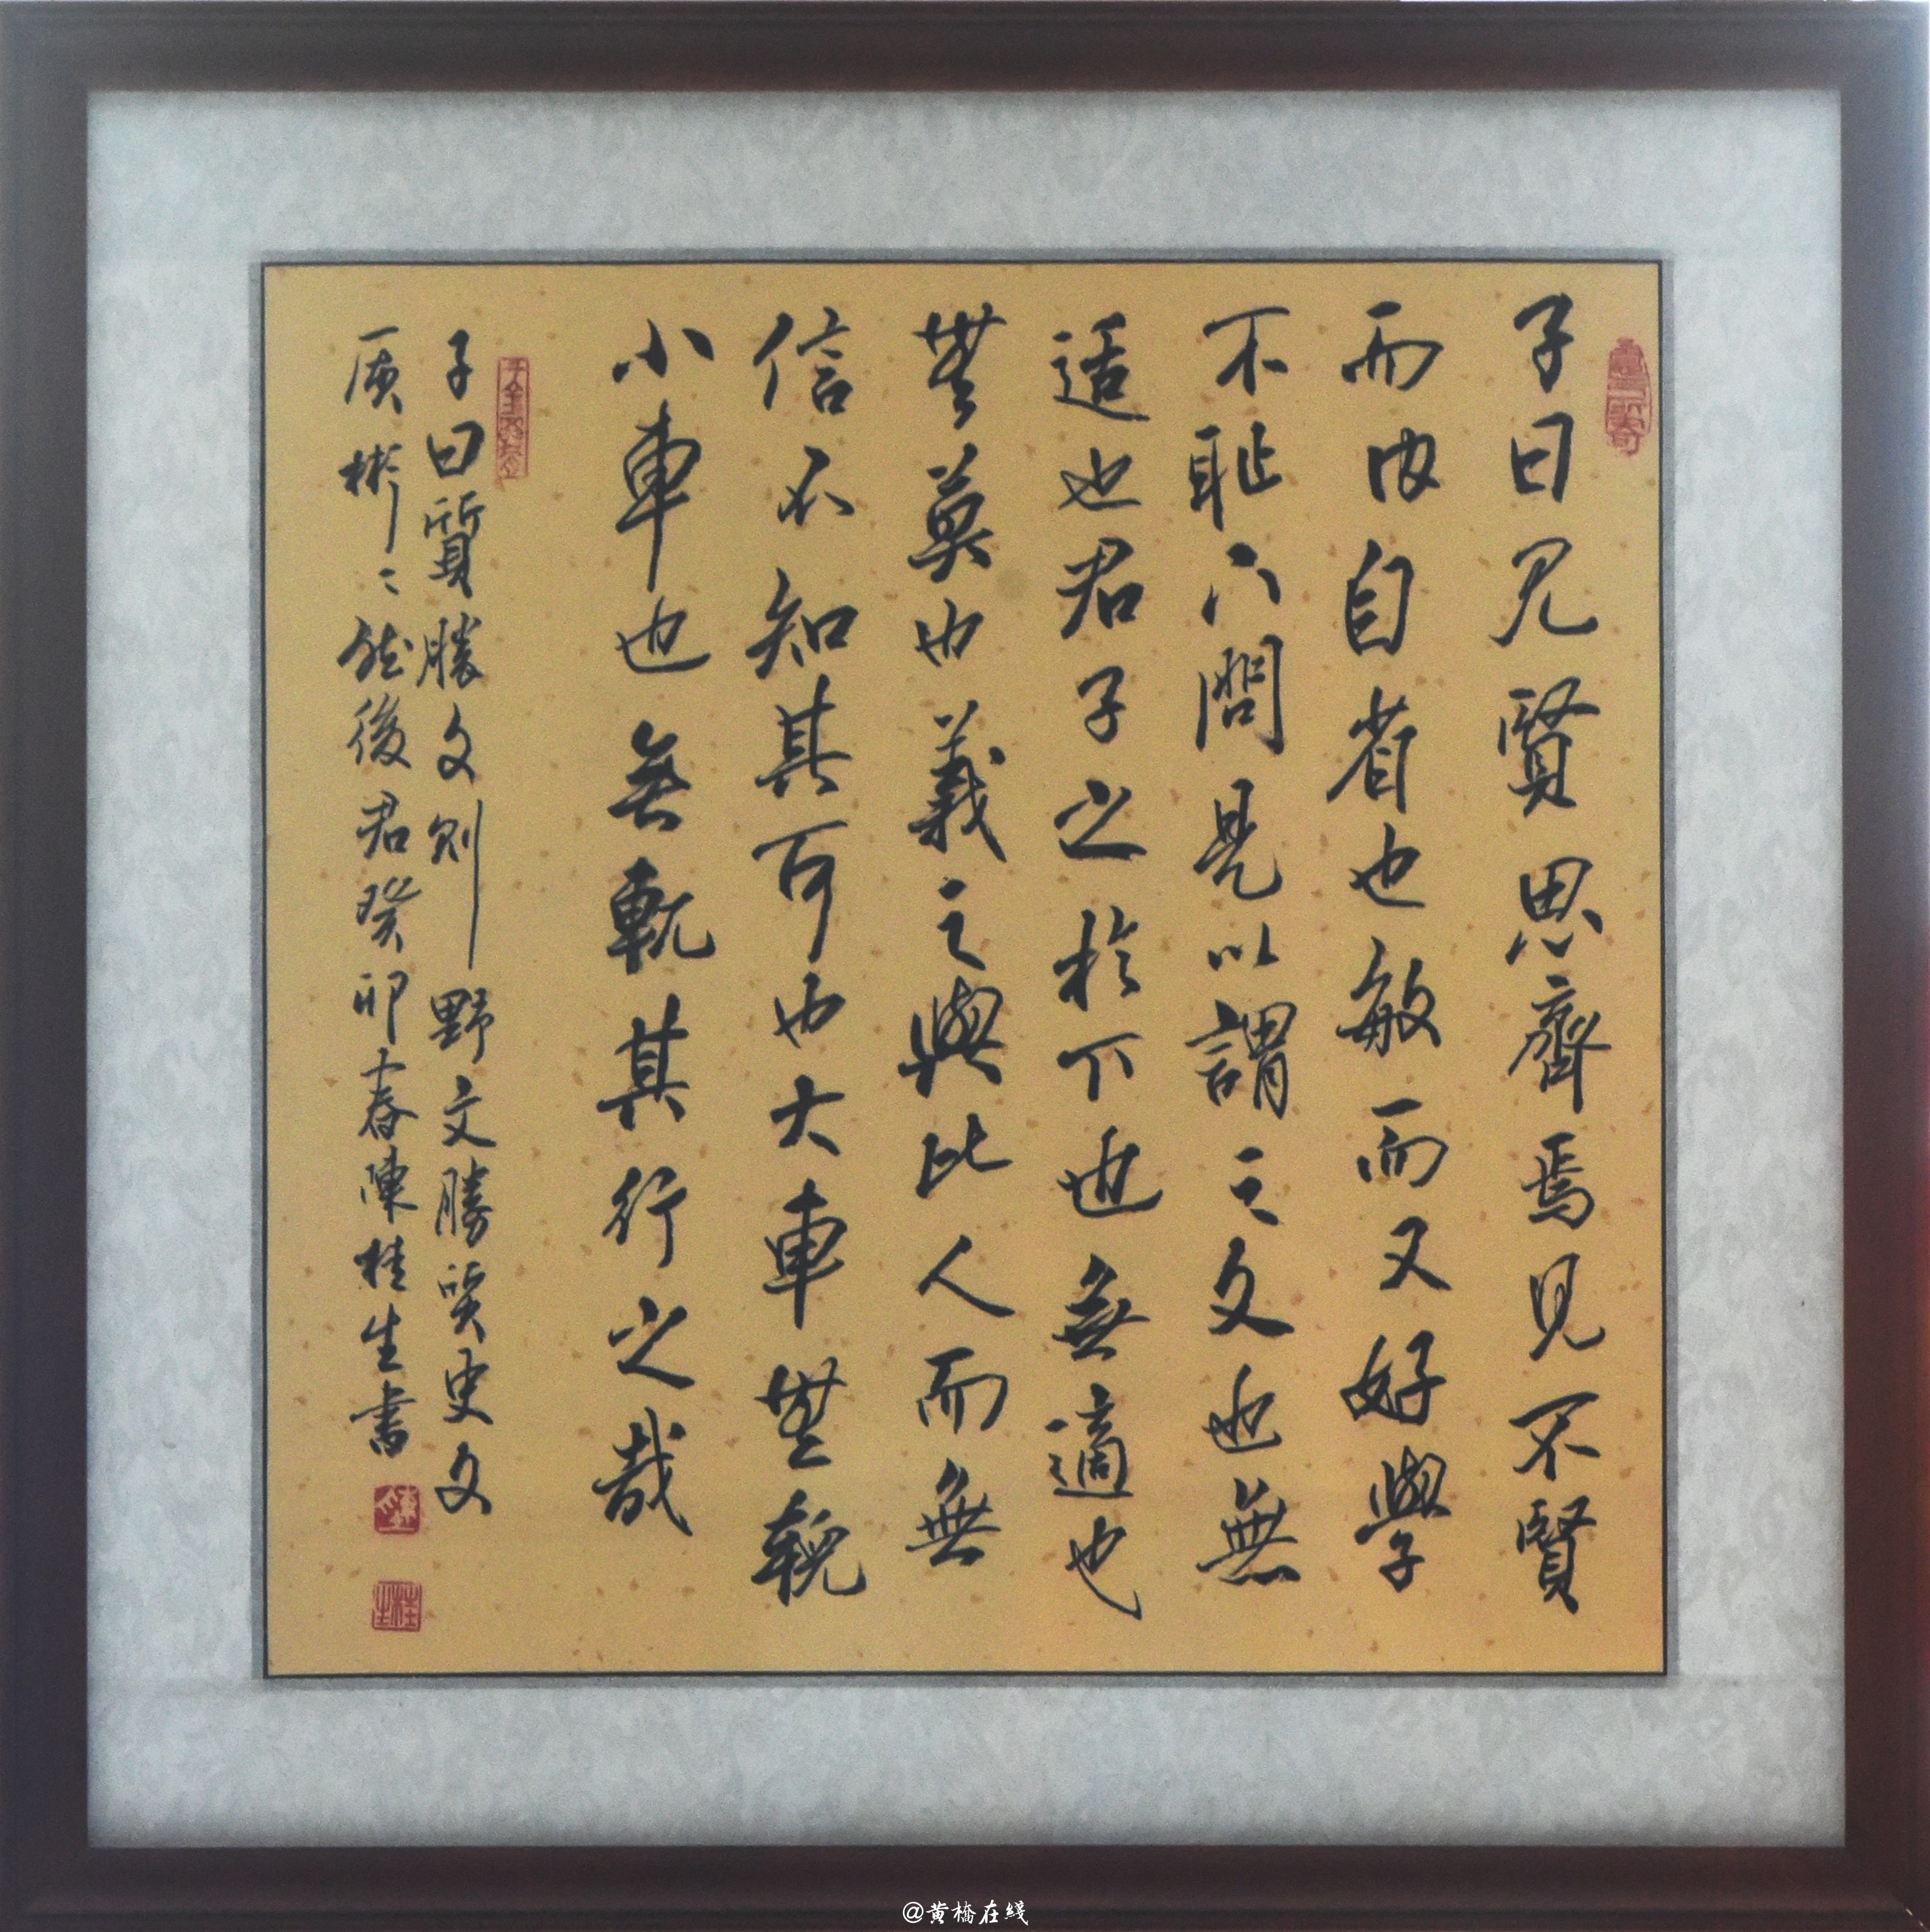 子曰見賢思齊焉見不賢
而内自省也敏而又好學
不恥下問是以謂之文也無
适也君子之於下也無適也
無莫也義之與比人而無
信不知其可也大車無輗
小車也無軏其行之哉
子曰質勝文則野文勝質史文
质彬〻然後君癸卯春陳桂生書
桂生
@黄橋在綫